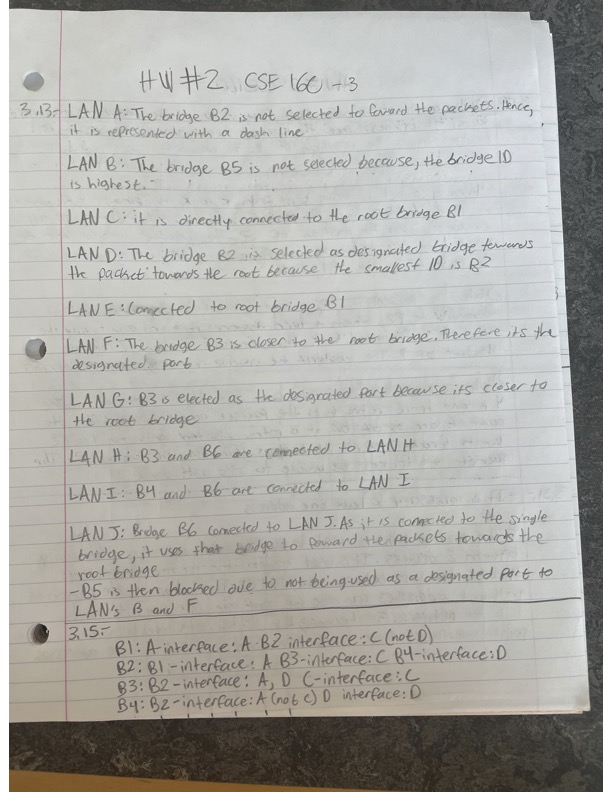 HW #2 CSE 160 - 3
3.13:- LAN A: The bridge B2 is not selected to foward the packets. Hence,
it is represented with a dash line
LAN B: The bridge B5 is not selected because, the bridge ID
is highest.
LAN C: it is directly connected to the root bridge B1
LAN D: The bridge B2 is selected as designated bridge towards
the packet towards the root because the smallest ID is B2
LAN E: Connected to root bridge B1
LAN F: The bridge B3 is closer to the root bridge. Therefore its the
designated port
LAN G: B3 is elected as the designated port because its closer to
the root bridge
LAN H: B3 and B6 are connected to LAN H
LAN I: B4 and B6 are connected to LAN I
LAN J: Bridge B6 connected to LAN J. As it is connected to the single
bridge, it uses that bridge to foward the packets towards the
root bridge
-B5 is then blocked due to not being used as a designated port to
LAN's B and F
3.15:-
B1: A-interface: A B2 interface: C (not D)
B2: B1-interface: A B3-interface: C B4-interface: D
B3: B2-interface: A, D C-interface: C
B4: B2-interface: A (not C) D interface: D